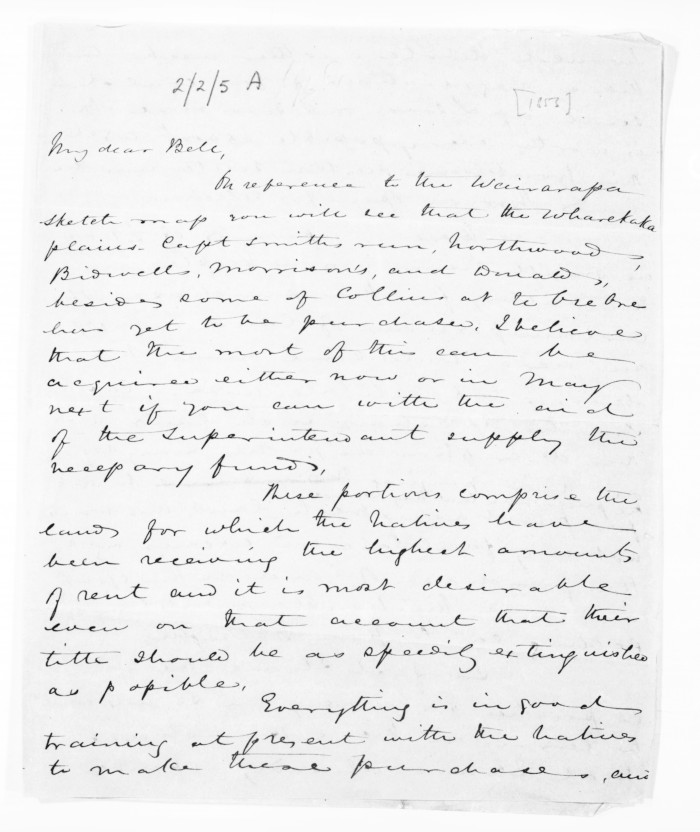 2/2/5 A
[1853]
My dear Bell,
On reference to the Wairarapa
sketch map you will see that the Wharekaka
plains - Capt Smiths run, Northwoods,
Bidwells, Morrison's, and Donalds,
besides some of Collins at Te
has yet to be purchased. I believe
that the most of this can be
acquired either now or in May
next if you can with the aid
of the Superintendant supply the
necessary funds.
These portions comprise the
lands for which the Natives have
been receiving the highest amounts
of rent and it is most desirable
even on that account that their
title should be as speedily extinguished
as possible.
Everything is in good
training at present with the Natives
to make these purchases, and